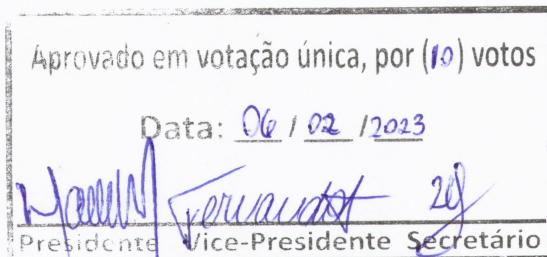 Aprovado em votação única, por (10) votos
Data: 06 / 02 / 2023
Presidente Vice-Presidente Secretário